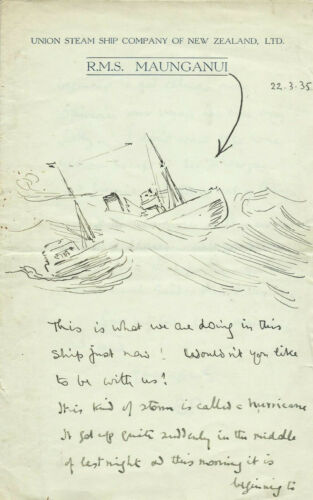 UNION STEAM SHIP COMPANY OF NEW ZEALAND, LTD.
R.M.S. MAUNGANUI
22.3.35
This is what we are doing in this
ship just now! Wouldn't you like
to be with us!
This kind of storm is called a hurricane
It got up quite suddenly in the middle
of last night and this morning it is
beginning to